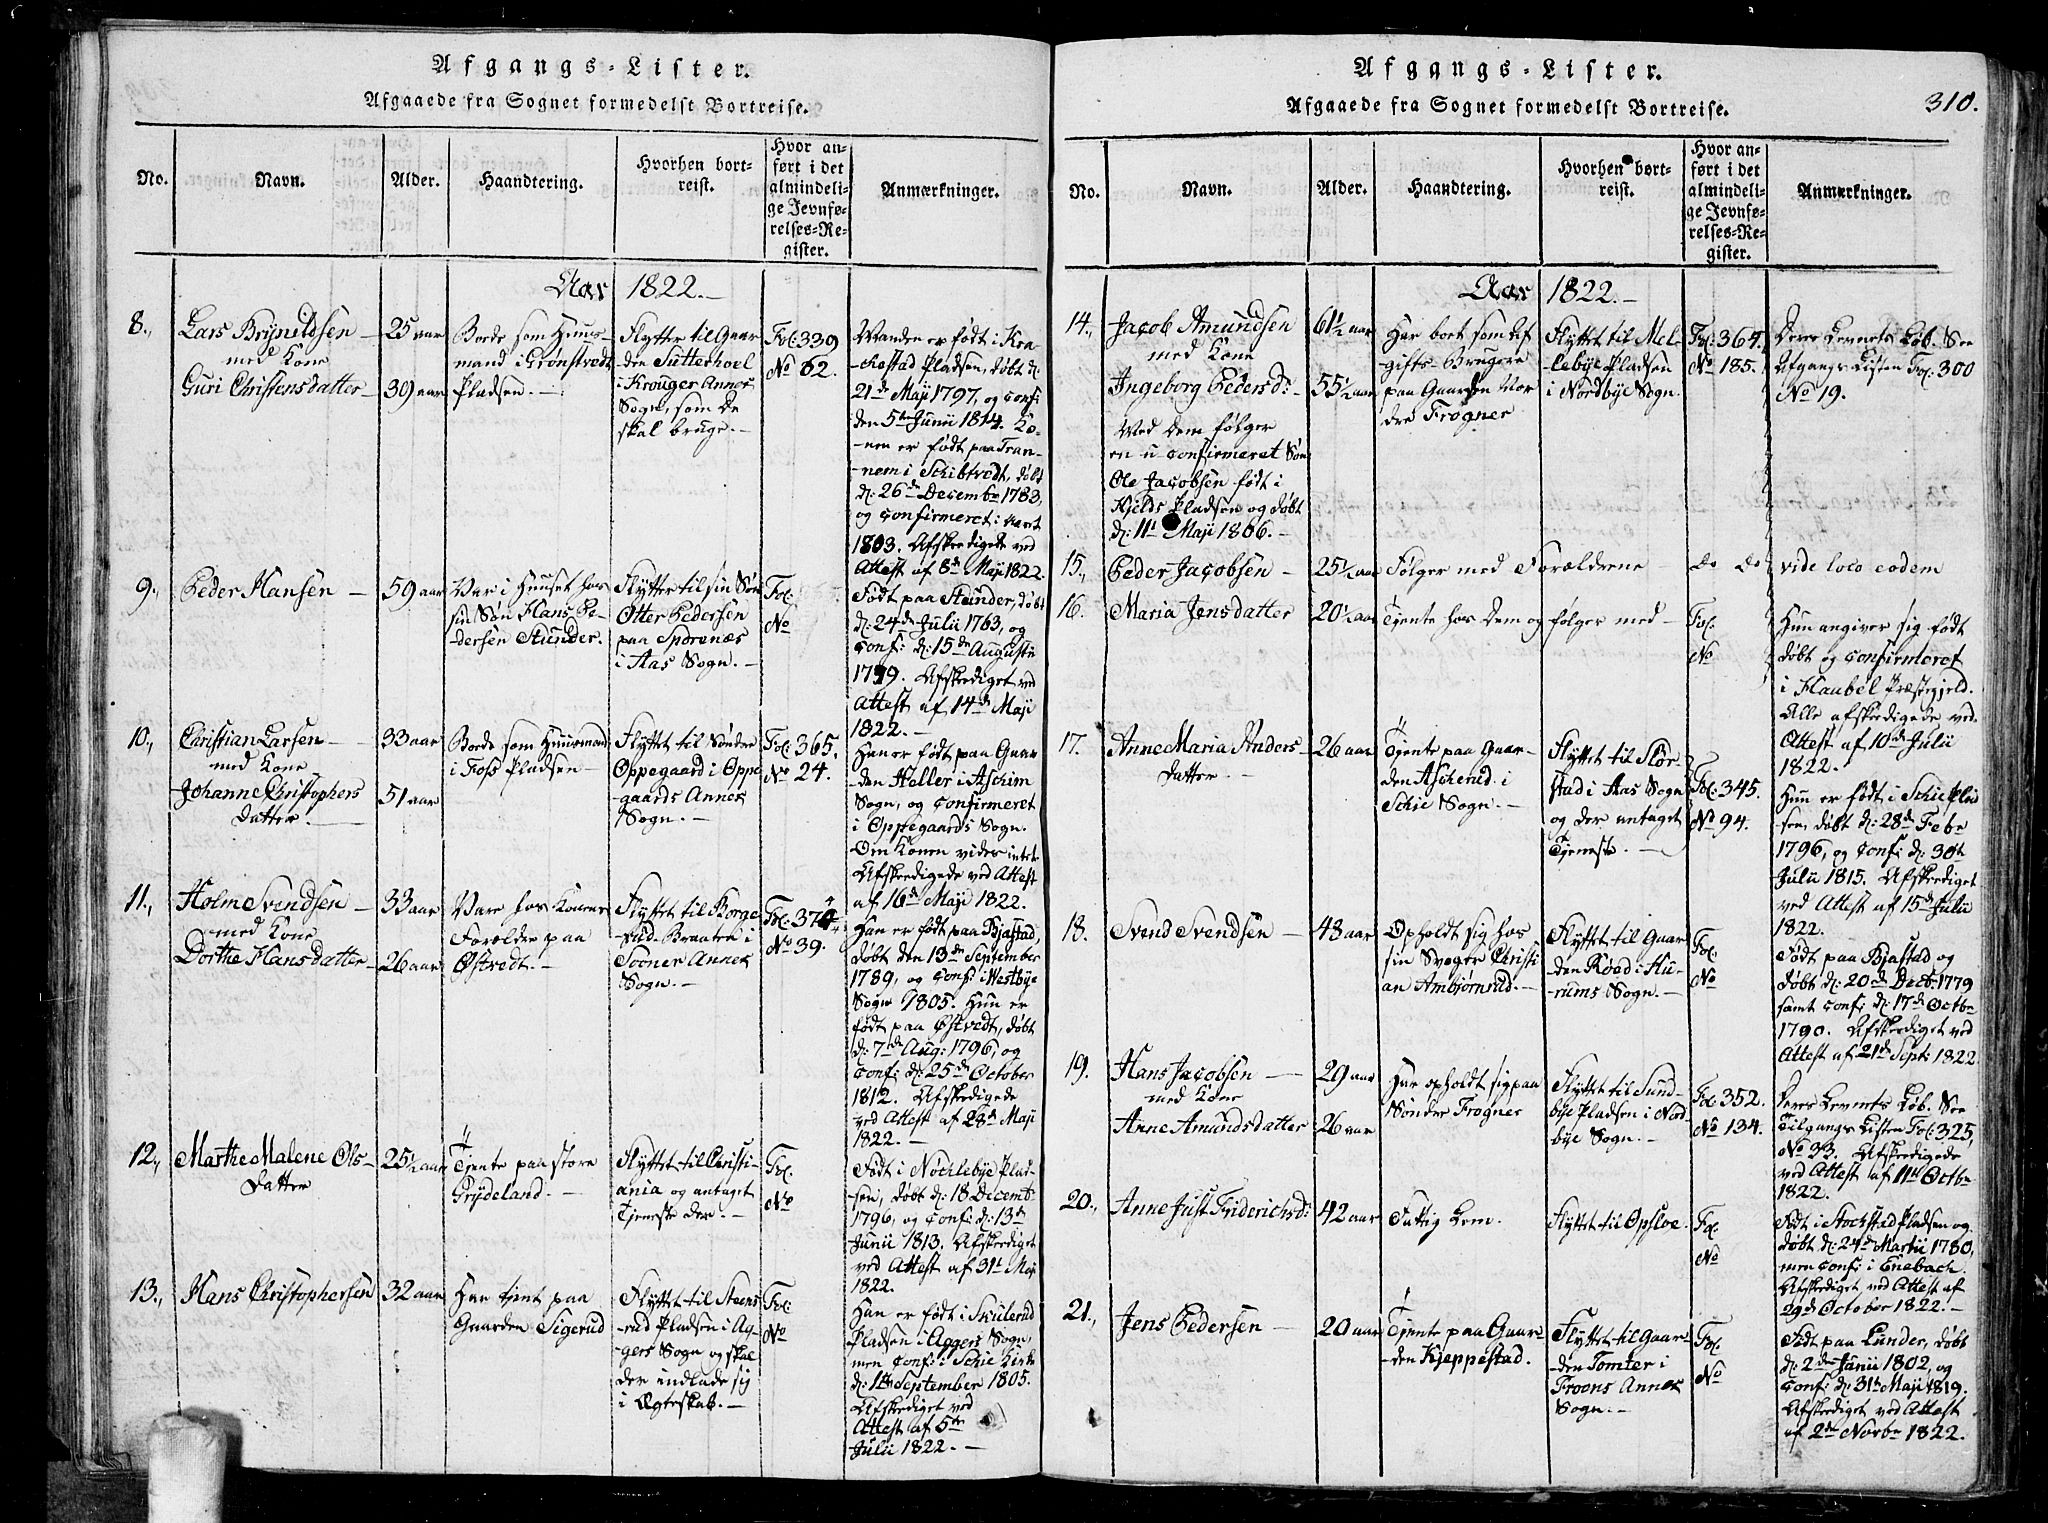 Afgangs-Lister.
Afgaaede fra Sognet formedelst Bortreise.
No.
Navn.
Alder.
Haandtering.
Hvorhen bort-
reist.
Hvor an-
ført i det
almindeli-
ge Jevnfø-
relses-Re-
gister.
Anmærkninger.
Aar 1822.-
8.,
Lars Brynildsen
med Kone
Guri Christensdatter
25 aar
39 aar
Boede som Huus-
mand i Grønstvedt
Pladsen.-
Flytter til Gaar
den Sutterhoel
i Krouger Annex
Sogn, som De
skal bruge.-
Fol: 339
No 62.
Manden er født i Kra-
-kostad Pladsen, døbt d:
21de Maji 1797, og conf:
den 5te Junii 1814. Ko-
-nen er født paa Tran-
-nem i Schibtvedt, døbt
d: 26de Decembr 1783,
og confirmeret i Aaret
1803. Afskeedigede ved
Attest af 8de Maji 1822.
9.,
Peder Hansen
59 aar
Var i Huuset hos
sin Søn Hans Pe-
dersen Stunder.
Flytter til sin Søn
Otter Pedersen
paa Sporenæs
i Aas Sogn.-
Fol:
No
Født paa Stunder, døbt
d: 24de Julii 1763, og
conf: d: 15de Augustii
1779. Afskeediget ved
Attest af 14de Maji
1822.-
10.,
Christian Larsen
med Kone
Johanne Christophers
datter.
33 aar
51 aar
Boede som Huusmand
i Foss Pladsen-
Flyttet til Søndre
Oppegaard i Oppe
-gaards Annex
Sogn.-
Fol: 365.
No 24.
Han er født paa Gaar
den Haller i Aschim
Sogn, og confirmeret
i Oppegaards Sogn.
Om Konen vides intet
Afskeedigede ved Attest
af 16de Maji 1822.
11.,
Holm Svendsen
med Kone
Dorthe Hansdatter
33 aar
26 aar
Vare hos Konens
Forældre paa
Østvedt.-
Flyttet til Borge
-rud-Braaten i
Sooner Annex
Sogn.-
Fol: 374
No 39.
Han er født paa Bjastad,
døbt den 13de September
1789, og conf: i Westbye
Sogn 1805. Hun er
født paa Østvedt, døbt
d: 7de Aug: 1796, og
conf: d: 25de October
1812. Afskeedigede
ved Attest af 28de Maji
1822.-
12.,
Marthe Malene Ols-
datter
25½ aar
Tjente paa store
Grydeland.-
Flyttet til Christi-
ania og antaget
Tjeneste der.-
Fol:
No
Født i Nøchlebye Plad-
sen, døbt d: 18 Decemb:
1796, og conf: d: 13de
Junii 1813. Afskeediget
ved Attest af 31te Maji
1822.
13.,
Hans Christophersen
32 aar
Har tjent paa
Gaarden Sigerud
Flyttet til Steens
-rud Pladsen i Ag-
-gers Sogn og skal
der indlade sig
i Ægteskab.-
Fol:
No
Han er født i Skulerud
Pladsen i Aggers Sogn,
men conf: i Schie Kirke
d: 1te September 1805.
Afskeediget ved
Attest af 5te
Julii 1822.-
Afgangs-Lister.
Afgaaede fra Sognet formedelst Bortreise.
310.
No.
Navn.
Alder.
Haandtering.
Hvorhen bort-
reist.
Hvor an-
ført i det
almindeli-
ge Jevnfø-
relses-Re-
gister.
Anmærkninger.
Aar 1822.-
14.,
Jacob Amundsen
med Kone
Ingeborg Pedersd:
Med Dem følger
en u confirmeret Søn
Ole Jacobsen født i
Kjelds Pladsen og døbt
d: 11te Maji 1806.-
61½ aar
55½ aar
Har boet som Af
gifts-Brugere
paa Gaarden Nor
dre Frogner
Flyttet til Mel
lebye Pladsen
i Nordbye Sogn.
Fol: 364.
No 185.
Deres Levnets Løb. See
Afgangs Listen Fol: 300
No 19.
15.,
Peder Jacobsen-
25½ aar
Følger med Forældrene
do do
vide loco eodem
16.
Maria Jensdatter
20½ aar
Tjente hos Dem og følger med-
Fol.
No
Hun angiver sig født
døbt og confirmeret
i Haabøl Præstegjeld.
Alle afskeedigede ved
Attest af 10de Julii
1822.
17.
Anne Maria Anders-
datter.-
26 aar
Tjente paa Gaar-
den Ascherud i
Schie Sogn.-
Flyttet til Slør
stad i Aas Sogn
og der antaget
Tjeneste.-
Fol: 345.
No 94.
Hun er født i Schie Plad
sen, døbt d: 28de Febr
1796, og conf: d: 30te
Julii 1815. Afskeediget
ved Attest af 15de Julii
1822.
18.
Svend Svendsen
43 aar
Opholdt sig hos
sin Svoger Christi
an Ambjørnrud.-
Flyttet til Gaar
den Røed i Hu-
-rums Sogn.-
Fol.
No
Født paa Bjastad og
døbt d: 20de Decbr 1779
samt conf: d: 17de Octbr
1790. Afskeediget ved
Attest af 21de Sept: 1822
19.
Hans Jacobsen
med Kone
Anne Amundsdatter
29 aar
26 aar
Har opholdt sig paa
Sønder Frogner
Flyttet til Sund-
bye Pladsen i Nord
bye Sogn.-
Fol 352.
No 134.
Deres Levnets Løb. See
Tilgangs Listen Fol: 325,
No 33. Afskeedigede
ved Attest af 11te Octbr
1822.
20.,
Anne Just Friderichsd:
42 aar
Fattig Lem.
Flyttet til Opsloe.
Fol.
No
Født i Stochstad Pladsen og
døbt d: 24de Martii 1780,
men conf: i Enebach.
Afskeediget ved Attest af
29de October 1822.-
21.,
Jens Pedersen
20 aar
Tjente paa Gaar-
-den Kjeppestad.
Flyttet til Gaar-
den Tomter i
Froens Annex
Sogn.-
Fol.
No
Født paa Lunder, døbt
d: 2den Junii 1802, og
conf: d: 31te Maji 1819.
Afskeediget ved Attest
af 2den Novbr 1822.